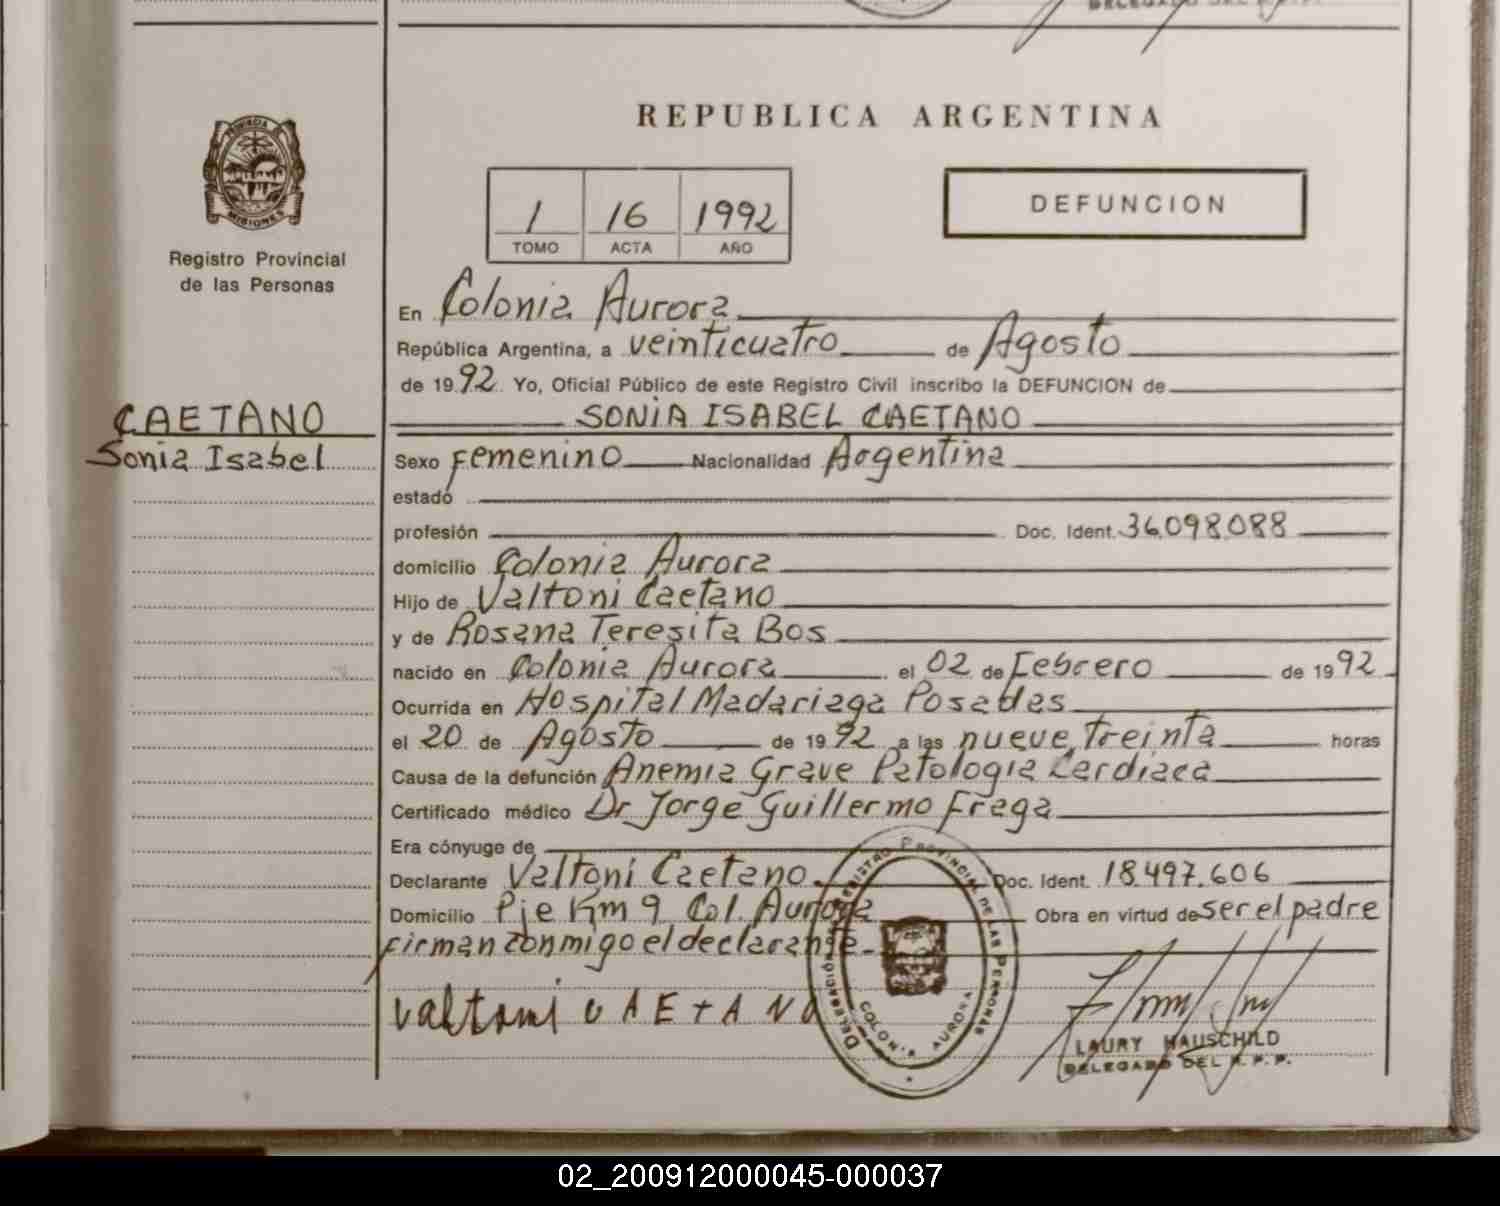 REPUBLICA ARGENTINA
PROVINCIA
MISIONES
Registro Provincial
de las Personas
1 16 1992
TOMO ACTA AÑO
DEFUNCION
En Colonia Aurora
República Argentina, a veinticuatro de Agosto
de 1992. Yo, Oficial Público de este Registro Civil inscribo la DEFUNCION de
CAETANO
Sonia Isabel
SONIA ISABEL CAETANO
Sexo Femenino Nacionalidad Argentina
estado
profesión Doc. Ident. 36.098.088
domicilio Colonia Aurora
Hijo de Valtoni Caetano
y de Rosana Teresita Bos
nacido en Colonia Aurora el 02 de Febrero de 1992
Ocurrida en Hospital Madariaga Posadas
el 20 de Agosto de 1992 a las nueve, treinta horas
Causa de la defunción Anemia Grave Patologia Cardiaca
Certificado médico Dr Jorge Guillermo Fraga
Era cónyuge de
Declarante Valtoni Caetano Doc. Ident. 18.497.606
Domicilio Pje Km 9 Col. Aurora Obra en virtud de ser el padre
firman conmigo el declarante
valtoni CAETANO
REGISTRO PROVINCIAL DE LAS PERSONAS
DELEGACIÓN
COLONIA AURORA
LAURY HAUSCHILD
DELEGADO DEL R.P.P.
02_200912000045-000037